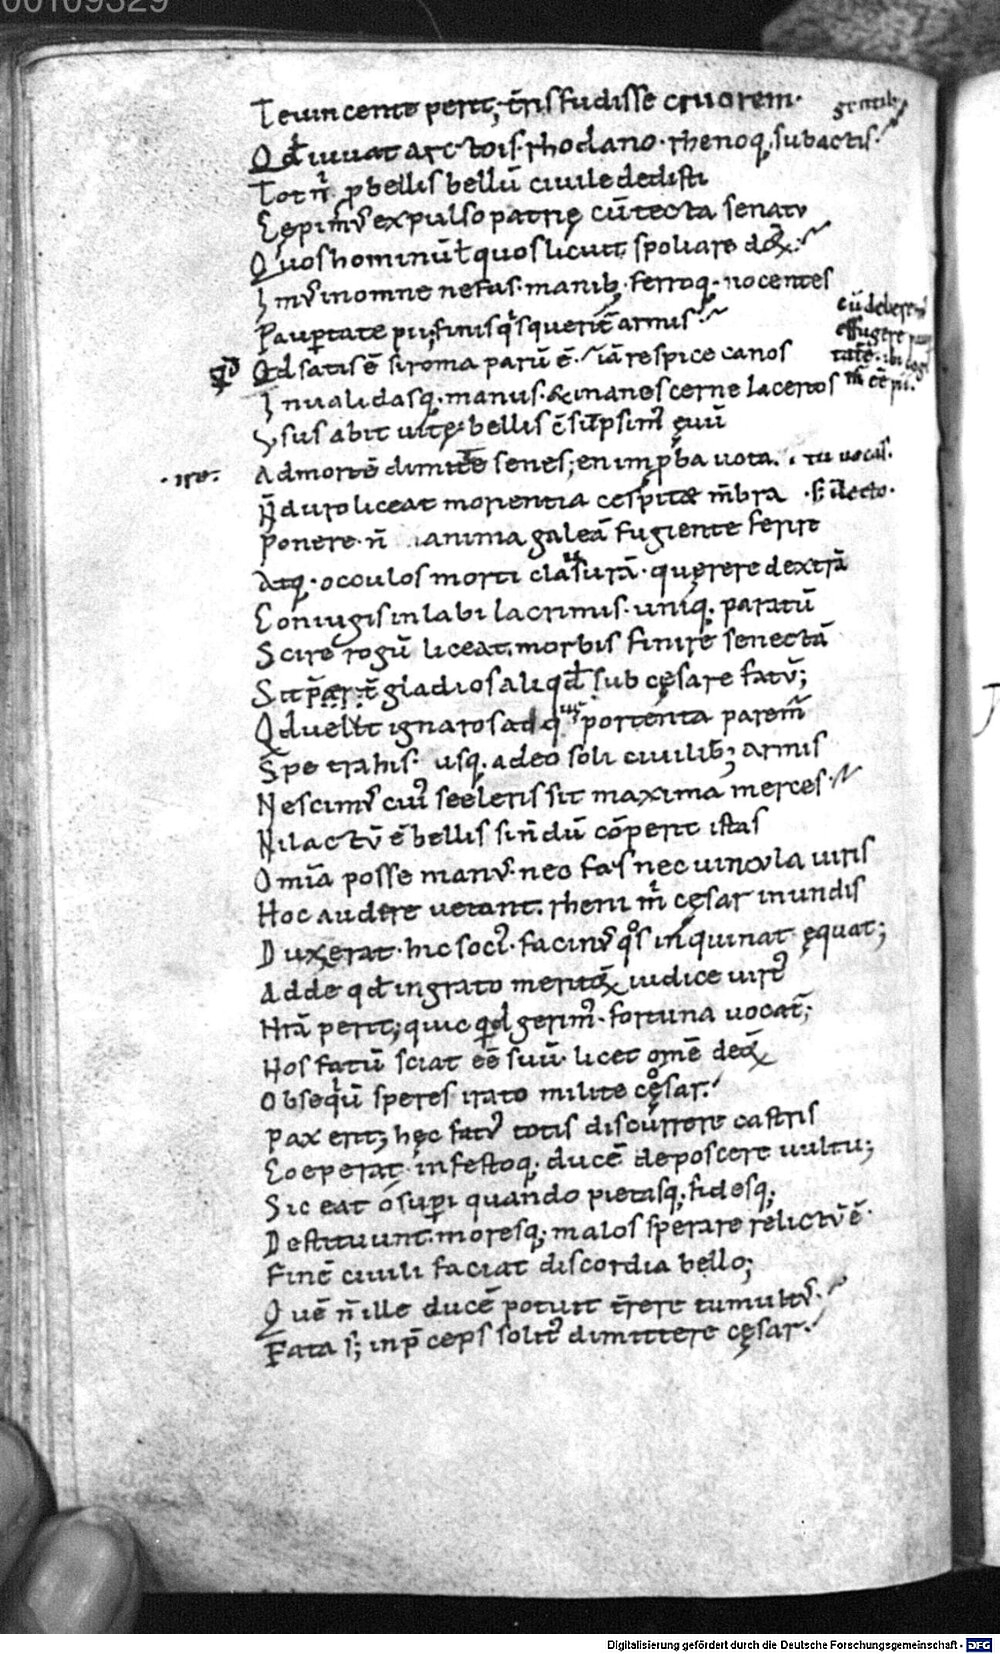 00109329
Te uincente perit, t̄ris fudisse cruorem. gentib;
Qđ iuuat arctois. rhodano. rhenoq; subactis.
Tot m̊ p bellis bellū ciuile dedisti
Cępim᷒ expulso patrię cū tecta senatu
Quos hominū ł quos licuit spoliare dōꝝ.
Im᷒ in omne nefas. manib; ferroq; nocentes
Paup̄tate pii; finis qͥs querit̄ armis. cū deberem᷒
Qđ satis ē si roma parū ē. iā respice canos effugere
Inualidasq; manus. & inanes cerne lacertos
Vsus abit uitę. bellis c̄sūpsim᷒ ęuū
Ad mortē dimitte senes; en imp̄ba uota.
N̄ duro liceat morientia cespitæ m̄bra
Ponere. n̄ anima galeā fugiente ferire
Atq; oculos morti clasurā. quęrere dextrā
Coniugis inlabi lacrimis. uniq; paratū
Scire rogū liceat. morbis finire senectā
Sit p̄ter gladios aliqđ sub cęsare fatū;
Qđ uelut ignaros ad portenta parem᷒
Spe trahis. usq; adeo soli ciuilib; armis
Nescim᷒ cui᷒ sceleris sit maxima merces.
Nil actū ē bellis si n̄dū cōperit istas
Omīa posse man᷒. nec fas nec uincula uiris
Hoc audere uetant. rheni m̊ cęsar in undis
Dux erat. hic soci᷒. facin᷒ qͦs inquinat ęquat;
Adde qđ ingrato meritoꝝ iudice uirt᷒
Nr̄a perit; quicqͥd gerim᷒. fortuna uocat̄;
Nos fatū sciat eē suū. licet omē deoꝝ
Obseqͥū speres irato milite cęsar.
Pax erit; hęc fat᷒ totis discurrere castris
Coeperat. infestoq; ducē deposcere uultu;
Sic eat ó sup̄i quando pietasq; fidesq;
Destituunt. moresq; malos sperare relictū ē.
Finē ciuili faciat discordia bello;
Quē n̄ ille ducē potuit t̄rere tumult᷒.
Fata s; in p̄ceps solit᷒ dimittere cęsar.
Digitalisierung gefördert durch die Deutsche Forschungsgemeinschaft - DFG